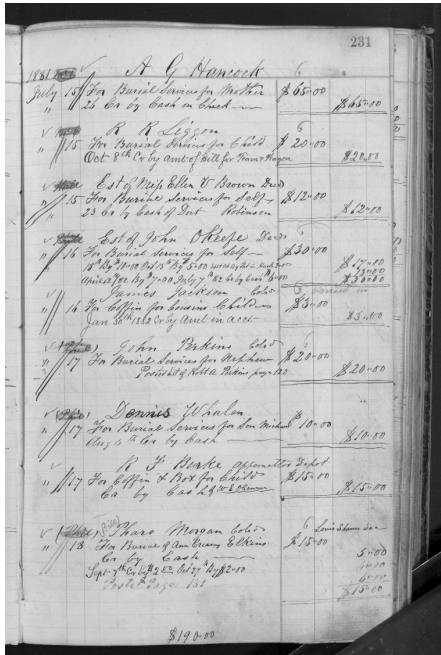 231
1881 A G Hancock 6
July 15 For Burial Services for Mother $65.00
" 26 Cr by Cash in Check $65.00
R R Liggon 6
" 15 For Burial Services for Child $20.00
Oct 8th Cr by amt of bill for Team & Wagon $20.00
Est of Miss Ellen V Brown Decd
" 15 For Burial Services for Self $12.00
" 23 Cr by Cash of Robinson $12.00
Est of John OKeefe Decd 6
" 16 For Burial Services for Self $30.00
$17.00
$30.00
James Jackson Cold 6
" 16 For Coffin for Cousins Child $3.00
Jan 30th 1882 Cr by Amt in acct $3.00
John Perkins Cold 6
" 17 For Burial Services for Nephew $20.00
Posted at Robt A Perkins, page 122 $20.00
Dennis Whalen
" 17 For Burial Services for Son Michael $10.00
Aug 4th Cr by Cash $10.00
R J Burke Appomattox Depot
" 17 For Coffin & Box for Child $15.00
Cr by Cash of $15.00
Pharo Morgan Cold 6
" 18 For Burial of Ann Elkins $15.00
Cr by Cash 5.00
Sept 7th Cr by $2.00 Oct 27th By $2.00
Posted Page 132
$15.00
$190.00